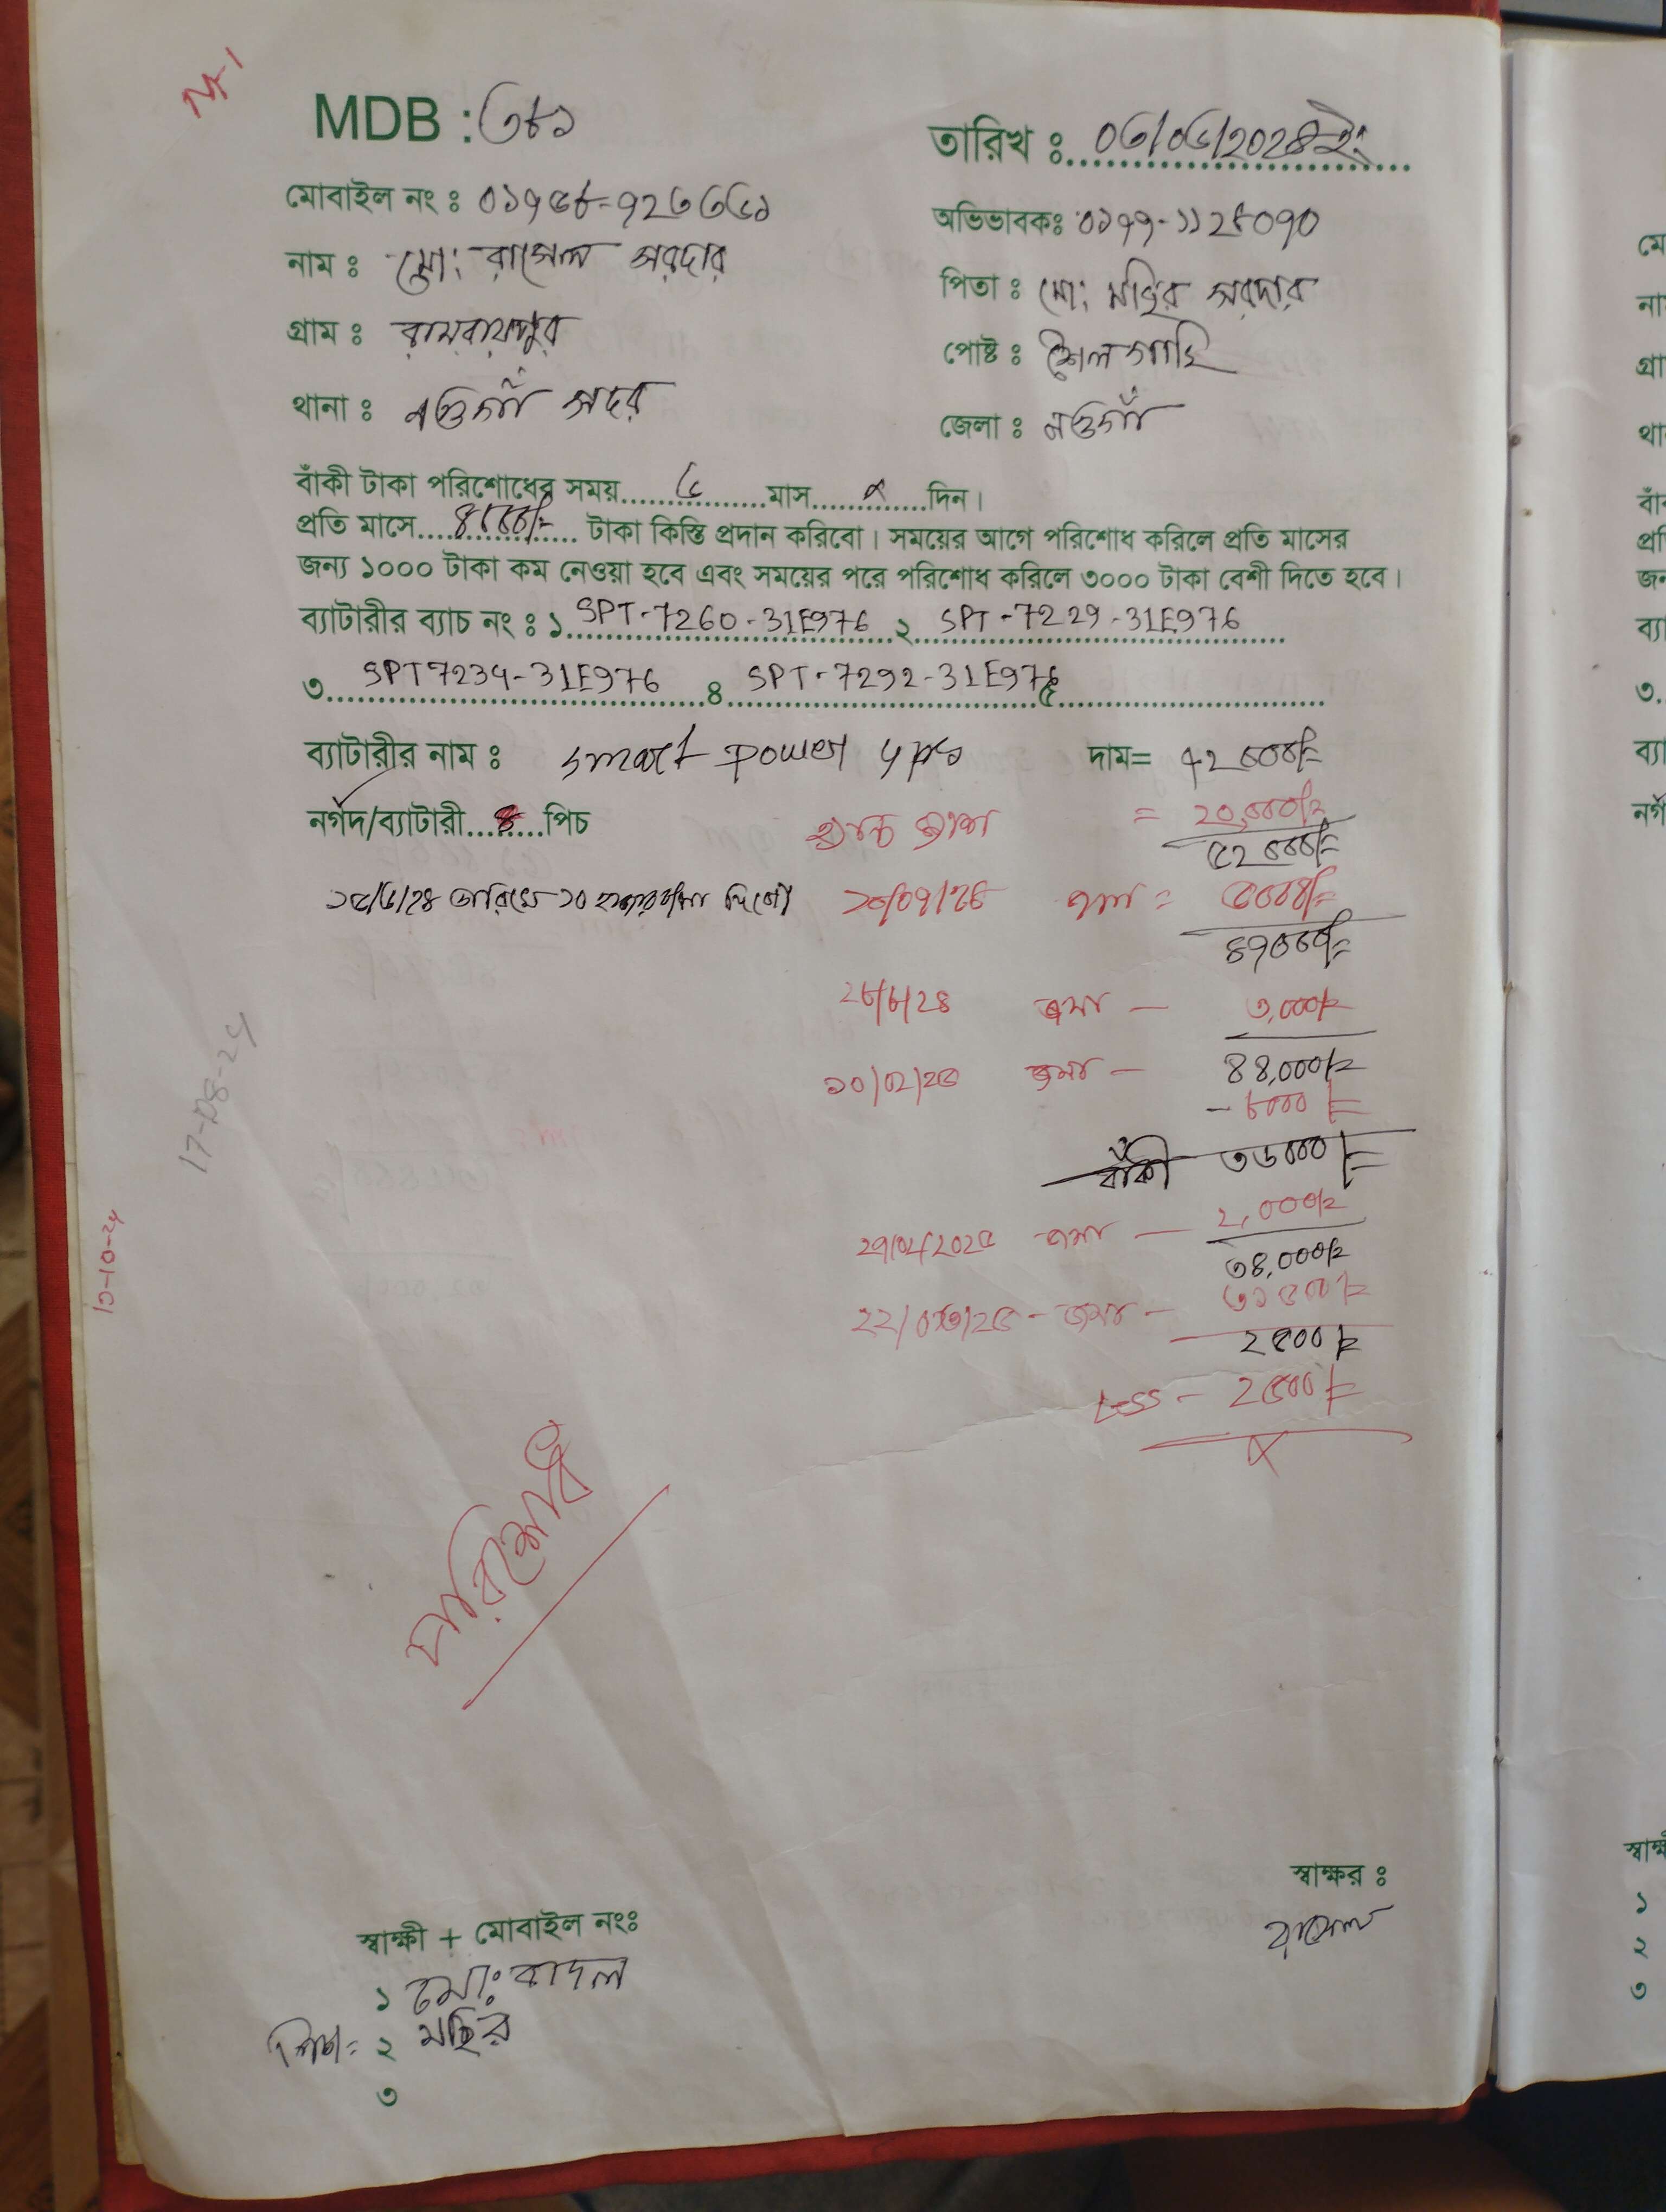 MDB : ৩৮১
তারিখ ঃ ০৩/০৬/২০২৪ইং
মোবাইল নং ঃ
অভিভাবকঃ
নাম ঃ মো: রাসেল সরদার
পিতা ঃ মো: মছির সরদার
গ্রাম ঃ রামরায়পুর
পোষ্ট ঃ শৈলগাছি
থানা ঃ নওগাঁ সদর
জেলা ঃ নওগাঁ
বাঁকী টাকা পরিশোধের সময়.......৬.......মাস.......দিন।
প্রতি মাসে....৪০০০/=.... টাকা কিস্তি প্রদান করিবো। সময়ের আগে পরিশোধ করিলে প্রতি মাসের
জন্য ১০০০ টাকা কম নেওয়া হবে এবং সময়ের পরে পরিশোধ করিলে ৩০০০ টাকা বেশী দিতে হবে।
ব্যাটারীর ব্যাচ নং ঃ ১. SPT-7260-31E976 ২. SPT-7229-31E976
৩. SPT7234-31E976 ৪ SPT-7292-31E976 ৫
ব্যাটারীর নাম ঃ smart power 4 pcs দাম= ৭২০০০/=
নর্গদ/ব্যাটারী...৪...পিচ
= ২০,০০০/=
৫২০০০/=
তারিখে ১০ হাজার টাকা দিবে। জমা = ৫০০০/=
৪৭০০০/=
২৮/৮/২৪ জমা — ৩,০০০/=
৪৪,০০০/=
১০/০২/২৫ জমা —
- ৮০০০/=
বাঁকী ৩৬০০০/=
২৭/০২/২০২৫ জমা — ২,০০০/=
৩৪,০০০/=
২২/০৩/২৫ - জমা — ৩১৫০০/=
২৫০০/=
Less - ২৫০০/=
পরিশোধ
17-08-24
13-10-24
স্বাক্ষর ঃ
রাসেল
স্বাক্ষী + মোবাইল নংঃ
১ মোঃ বাদল
পিতা= ২ মছির
৩